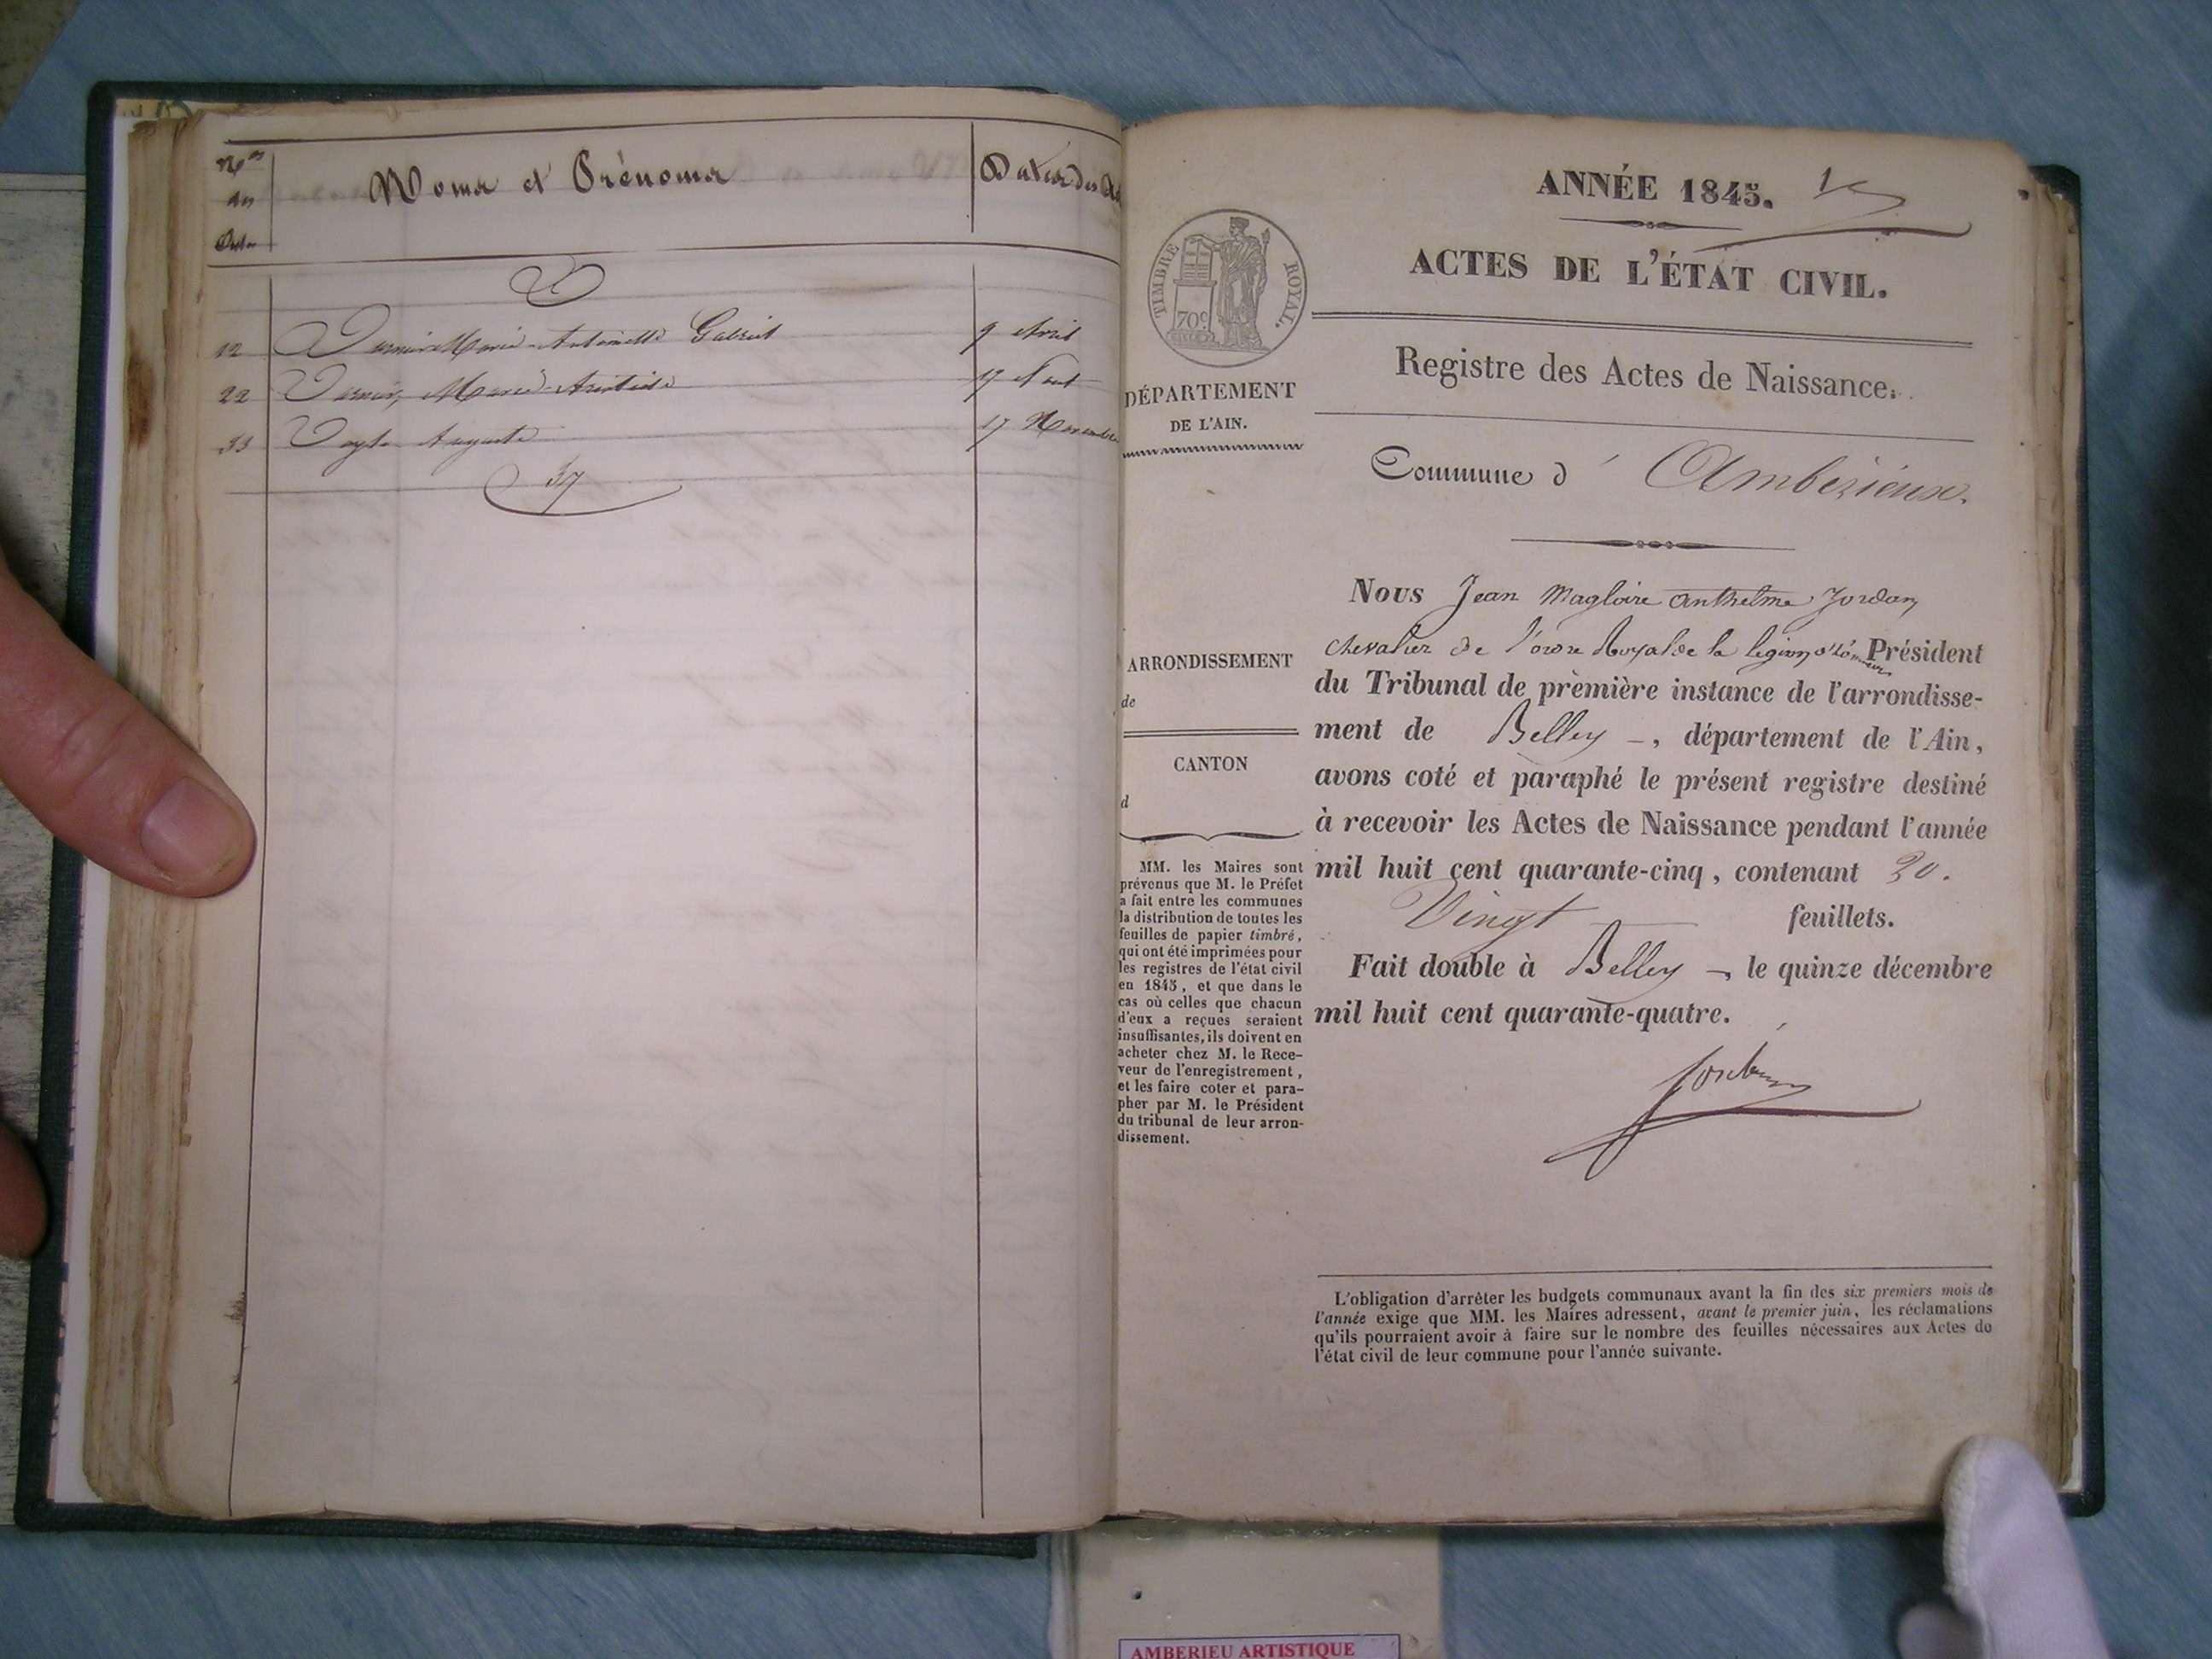 Nos
des
Noms et Prénoms
Dates des
V
12 Marie-Antoinette Gabriel 9 Avril
22 Marie 17
33 Auguste 17 Novembre
37
ANNÉE 1845.
TIMBRE ROYAL.
70c
ACTES DE L'ÉTAT CIVIL.
Registre des Actes de Naissance.
DÉPARTEMENT
DE L'AIN.
Commune d' Ambérieux.
Nous Jean Magloire Anthelme Jordan,
chevalier de l'ordre Royal de la légion d'honneur Président
du Tribunal de première instance de l'arrondisse-
ment de Belley -, département de l'Ain,
avons coté et paraphé le présent registre destiné
à recevoir les Actes de Naissance pendant l'année
mil huit cent quarante-cinq, contenant 20.
Vingt feuillets.
Fait double à Belley -, le quinze décembre
mil huit cent quarante-quatre.
Jordan
ARRONDISSEMENT
de
CANTON
d
MM. les Maires sont
prévenus que M. le Préfet
a fait entre les communes
la distribution de toutes les
feuilles de papier timbré,
qui ont été imprimées pour
les registres de l'état civil
en 1845, et que dans le
cas où celles que chacun
d'eux a reçues seraient
insuffisantes, ils doivent en
acheter chez M. le Rece-
veur de l'enregistrement,
et les faire coter et para-
pher par M. le Président
du tribunal de leur arron-
dissement.
L'obligation d'arrêter les budgets communaux avant la fin des six premiers mois de
l'année exige que MM. les Maires adressent, avant le premier juin, les réclamations
qu'ils pourraient avoir à faire sur le nombre des feuilles nécessaires aux Actes de
l'état civil de leur commune pour l'année suivante.
AMBERIEU ARTISTIQUE